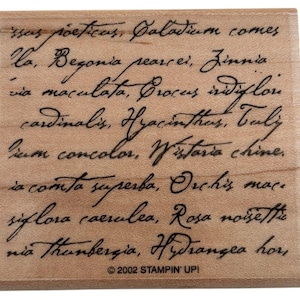 issus poeticus, Caladium comes
la, Begonia pearcei, Zinnia
via maculata, Crocus iridiflori
cardinalis, Hyacinthus, Tuly
ium concolor, Wistaria chine
ia comta superba, Orchis mac
siflora caerulea, Rosa noisetti
nia thunbergia, Hydrangea hor
© 2002 STAMPIN' UP!